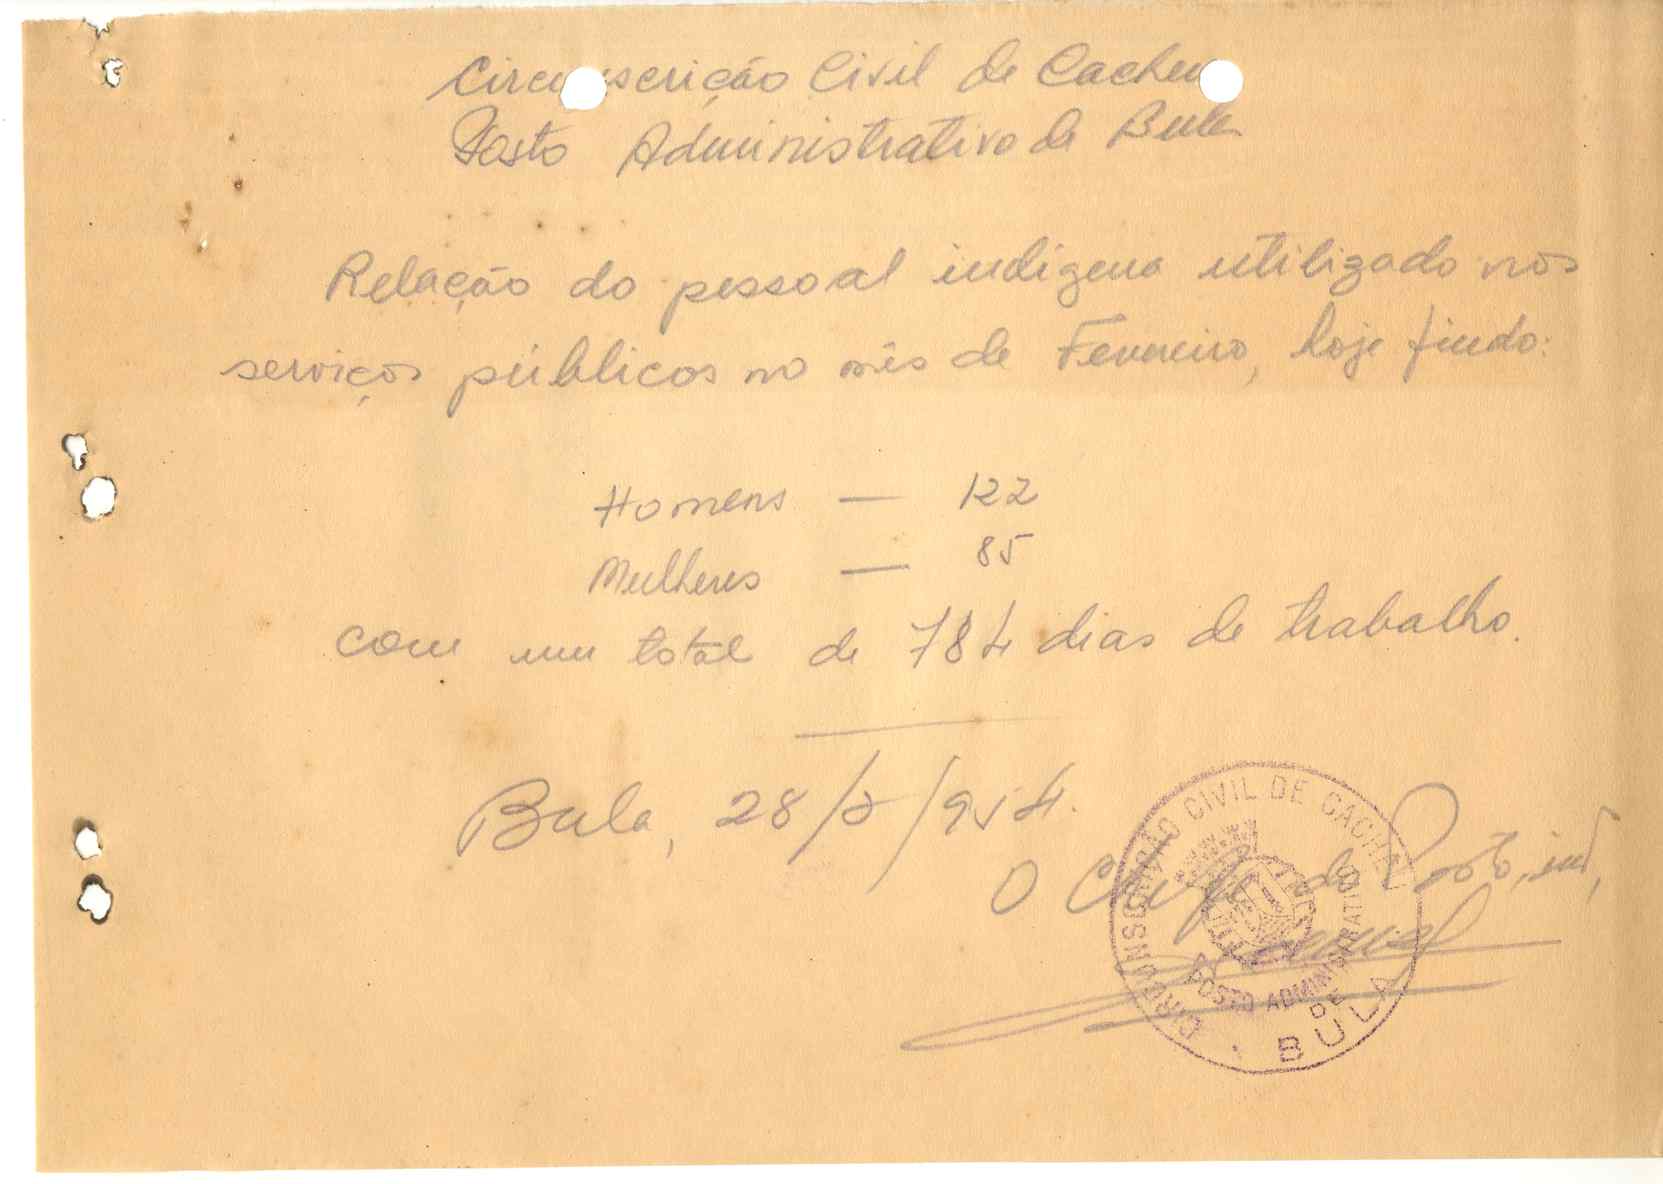 Circunscrição Civil de Cacheu
Posto Administrativo de Bula
Relação do pessoal indígena utilizado nos
serviços públicos no mês de Fevereiro, hoje findo:
Homens — 122
Mulheres — 85
com um total de 784 dias de trabalho.
Bula, 28/2/954.
O Chefe do Posto, int,
CIRCUNSCRIÇÃO CIVIL DE CACHEU
POSTO ADMINISTRATIVO
DE
BULA